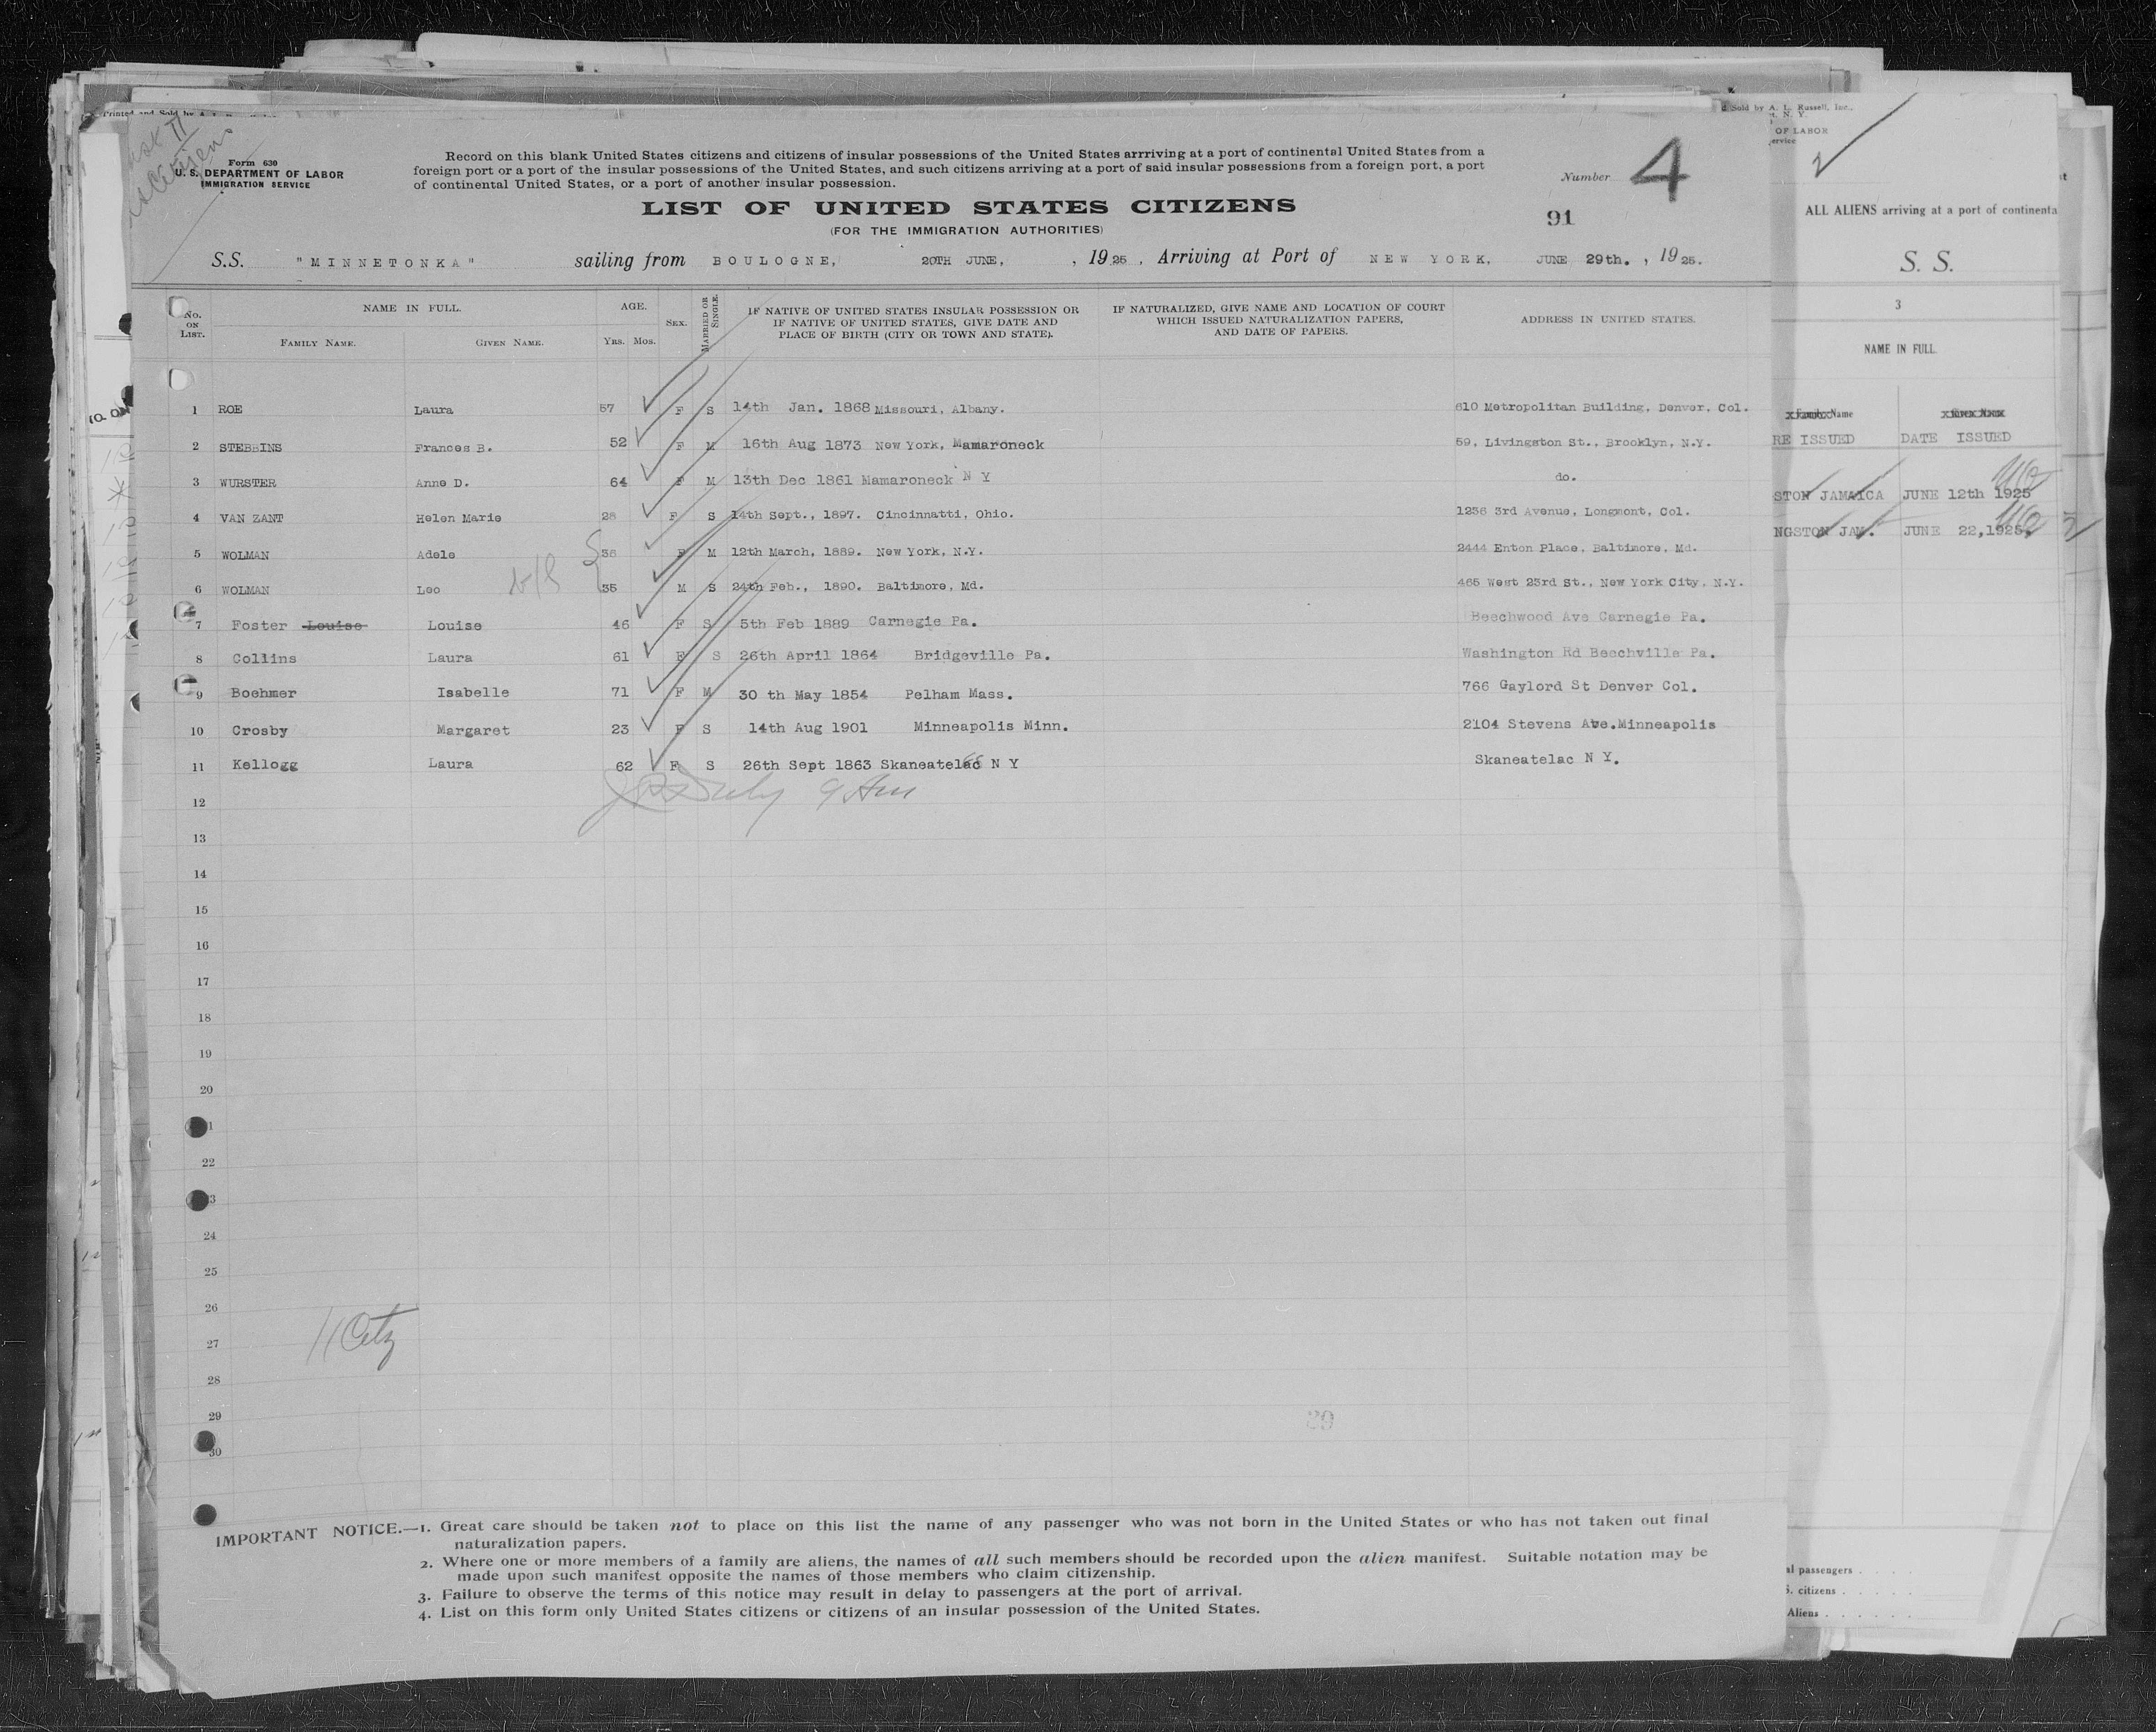 Form 630
U. S. DEPARTMENT OF LABOR
IMMIGRATION SERVICE
Record on this blank United States citizens and citizens of insular possessions of the United States arrriving at a port of continental United States from a
foreign port or a port of the insular possessions of the United States, and such citizens arriving at a port of said insular possessions from a foreign port, a port
of continental United States, or a port of another insular possession.
Number 4
LIST OF UNITED STATES CITIZENS
91
(FOR THE IMMIGRATION AUTHORITIES)
S.S. "MINNETONKA" sailing from BOULOGNE, 20TH JUNE, , 1925, Arriving at Port of NEW YORK, JUNE 29th. , 1925.
No. ON LIST. NAME IN FULL. FAMILY NAME. GIVEN NAME. AGE. YRS. MOS. SEX. MARRIED OR SINGLE. IF NATIVE OF UNITED STATES INSULAR POSSESSION OR IF NATIVE OF UNITED STATES, GIVE DATE AND PLACE OF BIRTH (CITY OR TOWN AND STATE). IF NATURALIZED, GIVE NAME AND LOCATION OF COURT WHICH ISSUED NATURALIZATION PAPERS, AND DATE OF PAPERS. ADDRESS IN UNITED STATES.
1 ROE Laura 57 F S 14th Jan. 1868 Missouri, Albany. 610 Metropolitan Building, Denver, Col.
2 STEBBINS Frances B. 52 F M 16th Aug 1873 New York, Mamaroneck 59, Livingston St., Brooklyn, N.Y.
3 WURSTER Anne D. 64 F M 13th Dec 1861 Mamaroneck N Y do.
4 VAN ZANT Helen Marie 28 F S 14th Sept., 1897. Cincinnatti, Ohio. 1236 3rd Avenue, Longmont, Col.
5 WOLMAN Adele 36 F M 12th March, 1889. New York, N.Y. 2444 Enton Place, Baltimore, Md.
6 WOLMAN Leo 35 M S 24th Feb., 1890. Baltimore, Md. 465 West 23rd St., New York City, N.Y.
7 Foster Louise Louise 46 F S 5th Feb 1889 Carnegie Pa. Beechwood Ave Carnegie Pa.
8 Collins Laura 61 F S 26th April 1864 Bridgeville Pa. Washington Rd Beechville Pa.
9 Boehmer Isabelle 71 F M 30 th May 1854 Pelham Mass. 766 Gaylord St Denver Col.
10 Crosby Margaret 23 F S 14th Aug 1901 Minneapolis Minn. 2104 Stevens Ave. Minneapolis
11 Kellogg Laura 62 F S 26th Sept 1863 Skaneatelac N Y Skaneatelac N Y.
12
13
14
15
16
17
18
19
20
22
24
25
26
27
28
29
30
11 Citz
IMPORTANT NOTICE.—1. Great care should be taken not to place on this list the name of any passenger who was not born in the United States or who has not taken out final
naturalization papers.
2. Where one or more members of a family are aliens, the names of all such members should be recorded upon the alien manifest. Suitable notation may be
made upon such manifest opposite the names of those members who claim citizenship.
3. Failure to observe the terms of this notice may result in delay to passengers at the port of arrival.
4. List on this form only United States citizens or citizens of an insular possession of the United States.
Sold by A. L. Russell, Inc.
OF LABOR
ALL ALIENS arriving at a port of continenta
S. S.
3
NAME IN FULL.
Family Name Given Name
RE ISSUED DATE ISSUED
STON JAMAICA JUNE 12th 1925
NGSTON JAM. JUNE 22,1925.
al passengers
S. citizens
Aliens